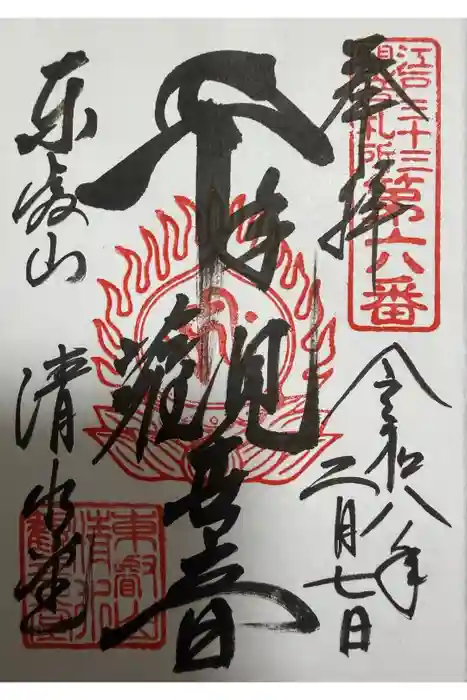 奉拝
江戸三十三
観音札所
第六番
令和八年
二月七日
千手觀世音
東叡山
清水堂
東叡山
清水
觀音堂